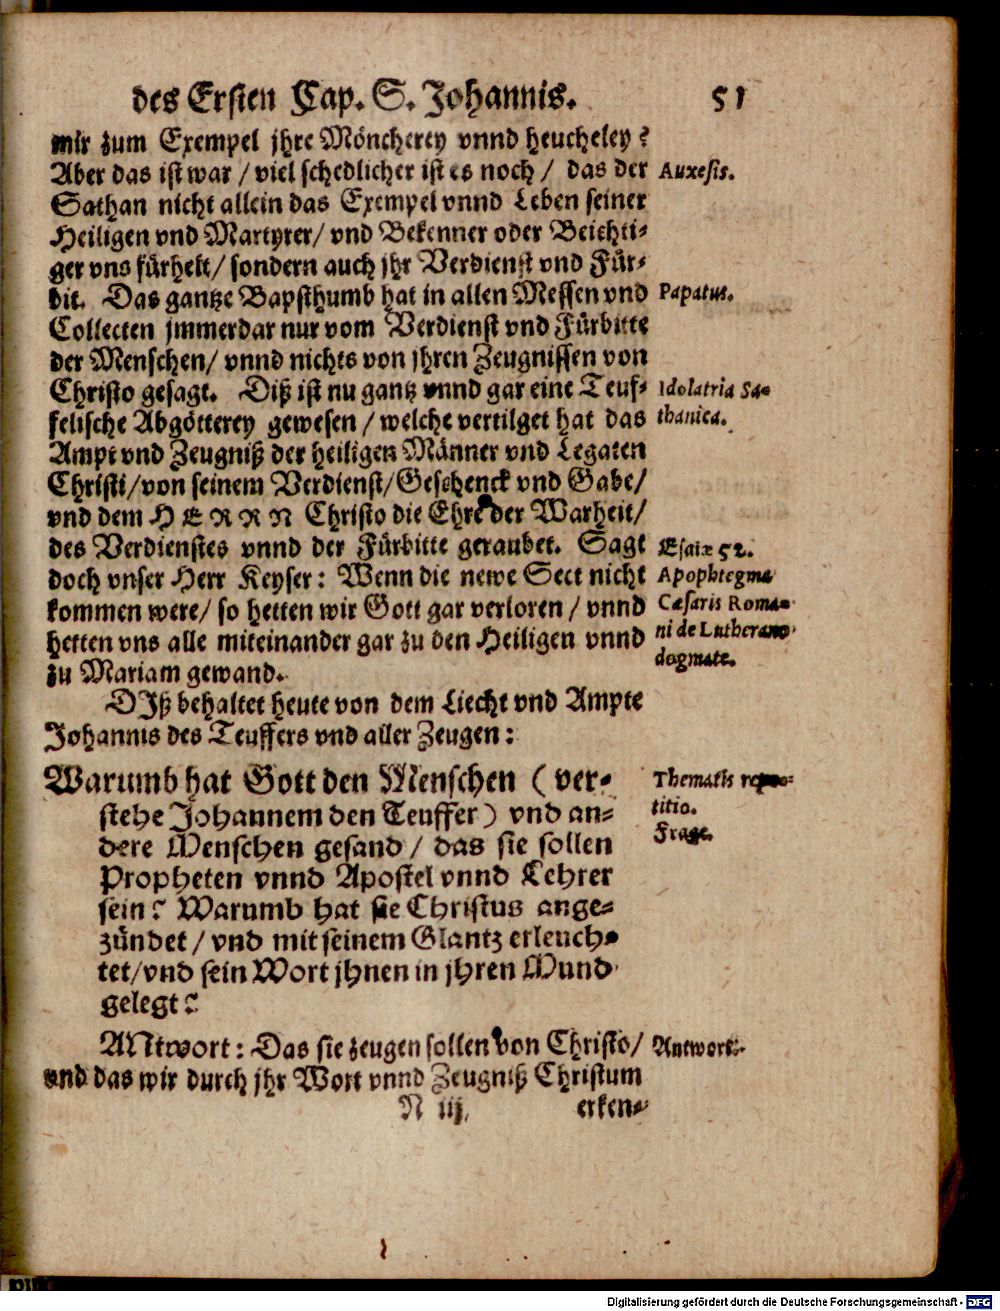 des Ersten Cap. S. Johannis. 51
mir zum Exempel jhre Möncherey vnnd heucheley?
Aber das ist war / viel schedlicher ist es noch / das der
Auxesis.
Sathan nicht allein das Exempel vnnd Leben seiner
Heiligen vnd Martyrer/ vnd Bekenner oder Beichti-
ger vns fürhelt/ sondern auch jhr Verdienst vnd Für-
bit. Das gantze Bapsthumb hat in allen Messen vnd
Papatus.
Collecten jmmerdar nur vom Verdienst vnd Fürbitte
der Menschen/ vnnd nichts von jhren Zeugnissen von
Christo gesagt. Diß ist nu gantz vnnd gar eine Teuf-
Idolatria Sa-
felische Abgötterey gewesen / welche vertilget hat das
thanica.
Ampt vnd Zeugniß der heiligen Männer vnd Legaten
Christi/ von seinem Verdienst/ Geschenck vnd Gabe/
vnd dem HERRN Christo die Ehre der Warheit/
des Verdienstes vnnd der Fürbitte geraubet. Sagt
Esaiæ 52.
doch vnser Herr Keyser: Wenn die newe Sect nicht
Apophtegma
kommen were/ so hetten wir Gott gar verloren / vnnd
Cæsaris Roma-
hetten vns alle miteinander gar zu den Heiligen vnnd
ni de Lutherano
zu Mariam gewand.
dogmate.
DIß behaltet heute von dem Liecht vnd Ampte
Johannis des Teuffers vnd aller Zeugen:
Warumb hat Gott den Menschen (ver-
Thematis repe-
stehe Johannem den Teuffer) vnd an-
titio.
dere Menschen gesand / das sie sollen
Frage.
Propheten vnnd Apostel vnnd Lehrer
sein? Warumb hat sie Christus ange-
zündet / vnd mit seinem Glantz erleuch-
tet/ vnd sein Wort jhnen in jhren Mund
gelegt?
ANtwort: Das sie zeugen sollen von Christo/
Antwort.
vnd das wir durch jhr Wort vnnd Zeugniß Christum
N iij erken-
Digitalisierung gefördert durch die Deutsche Forschungsgemeinschaft - DFG